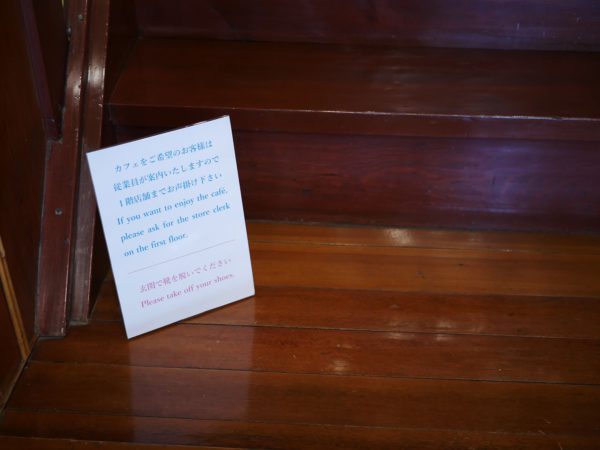 カフェをご希望のお客様は
従業員が案内いたしますので
1階店舗までお声掛け下さい
If you want to enjoy the café,
please ask for the store clerk
on the first floor.
玄関で靴を脱いでください
Please take off your shoes.